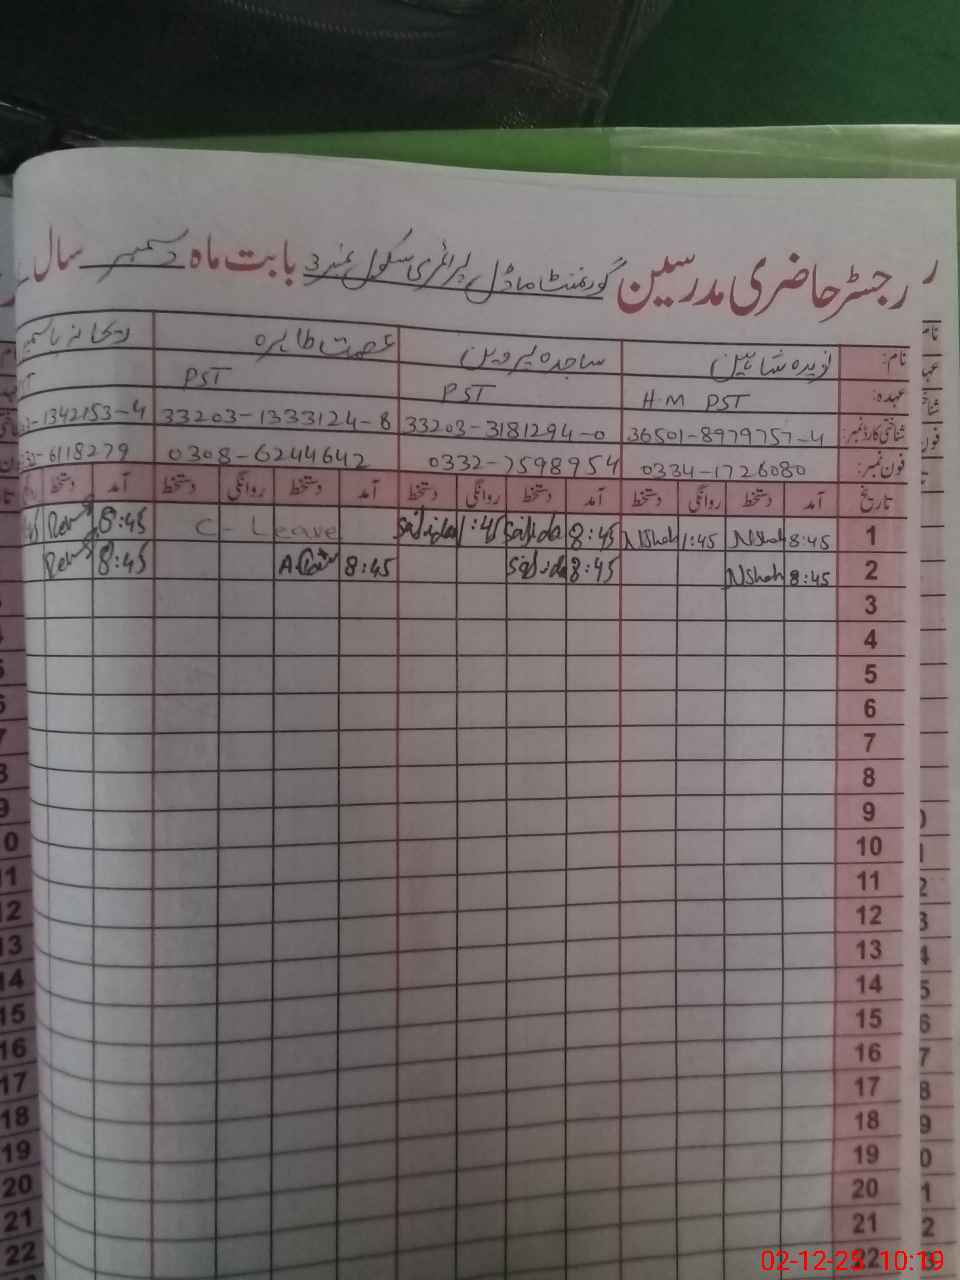 رجسٹر حاضری مدرسین گورنمنٹ ماڈل پرائمری سکول نمبر 3 بابت ماہ دسمبر سال
نام: نویدہ شاہین ساجدہ پروین عصمت طاہرہ ریحانہ یاسمین
عہدہ: H.M PST PST PST
شناختی کارڈ نمبر: 36501-8979757-4 33203-3181294-0 33203-1333124-8 1342153-4
فون نمبر: 0334-1726080 0332-7598954 0308-6244642 6118279
تاریخ آمد دستخط روانگی دستخط آمد دستخط روانگی دستخط آمد دستخط روانگی دستخط آمد دستخط
1 8:45 NShah 1:45 NShah 8:45 Sajida 1:45 Sajida C-Leave 8:45
2 8:45 NShah 8:45 Sajida 8:45 8:45
3
4
5
6
7
8
9
10
11
12
13
14
15
16
17
18
19
20
21
22
02-12-25 10:19